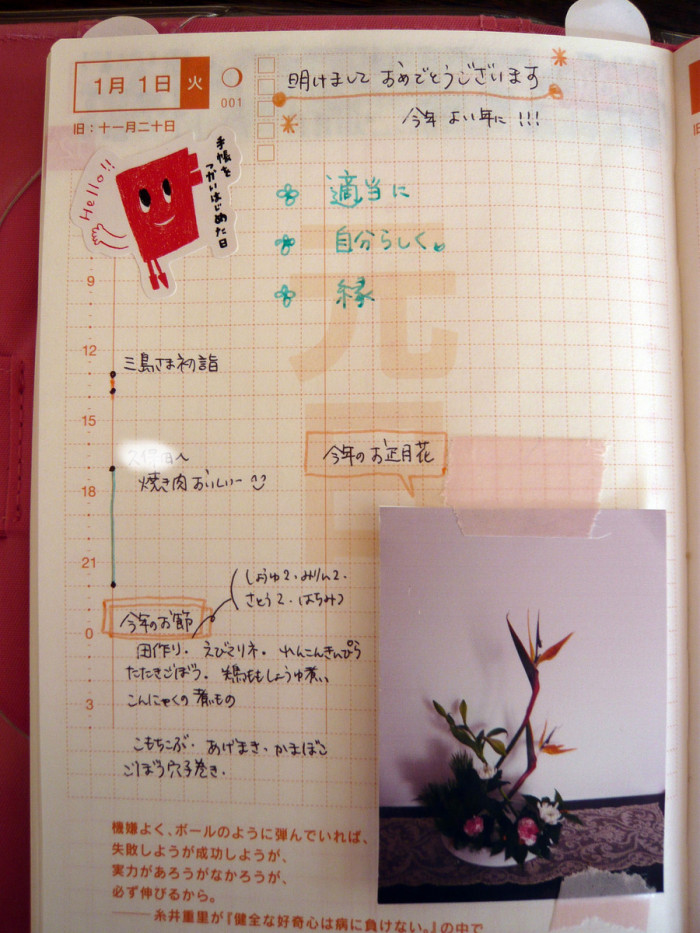 1月1日 火
001
旧：十一月二十日
明けまして おめでとうございます
今年 よい年に !!!
Hello!!
手帳を
つかいはじめた日
適当に
自分らしく。
縁
元
日
9
12
三島さま初詣
15
焼き肉おいしいー
18
今年のお正月花
21
しょうゆ2・みりん2・
さとう2・はちみつ
今年のお節
0
田作り・えびマリネ・れんこんきんぴら
たたきごぼう・鶏ももしょうゆ煮
こんにゃくの煮もの
3
こもちこぶ・あげまき・かまぼこ
ごぼう穴子巻き・
機嫌よく、ボールのように弾んでいれば、
失敗しようが成功しようが、
実力があろうがなかろうが、
必ず伸びるから。
――糸井重里が『健全な好奇心は病に負けない。』の中で